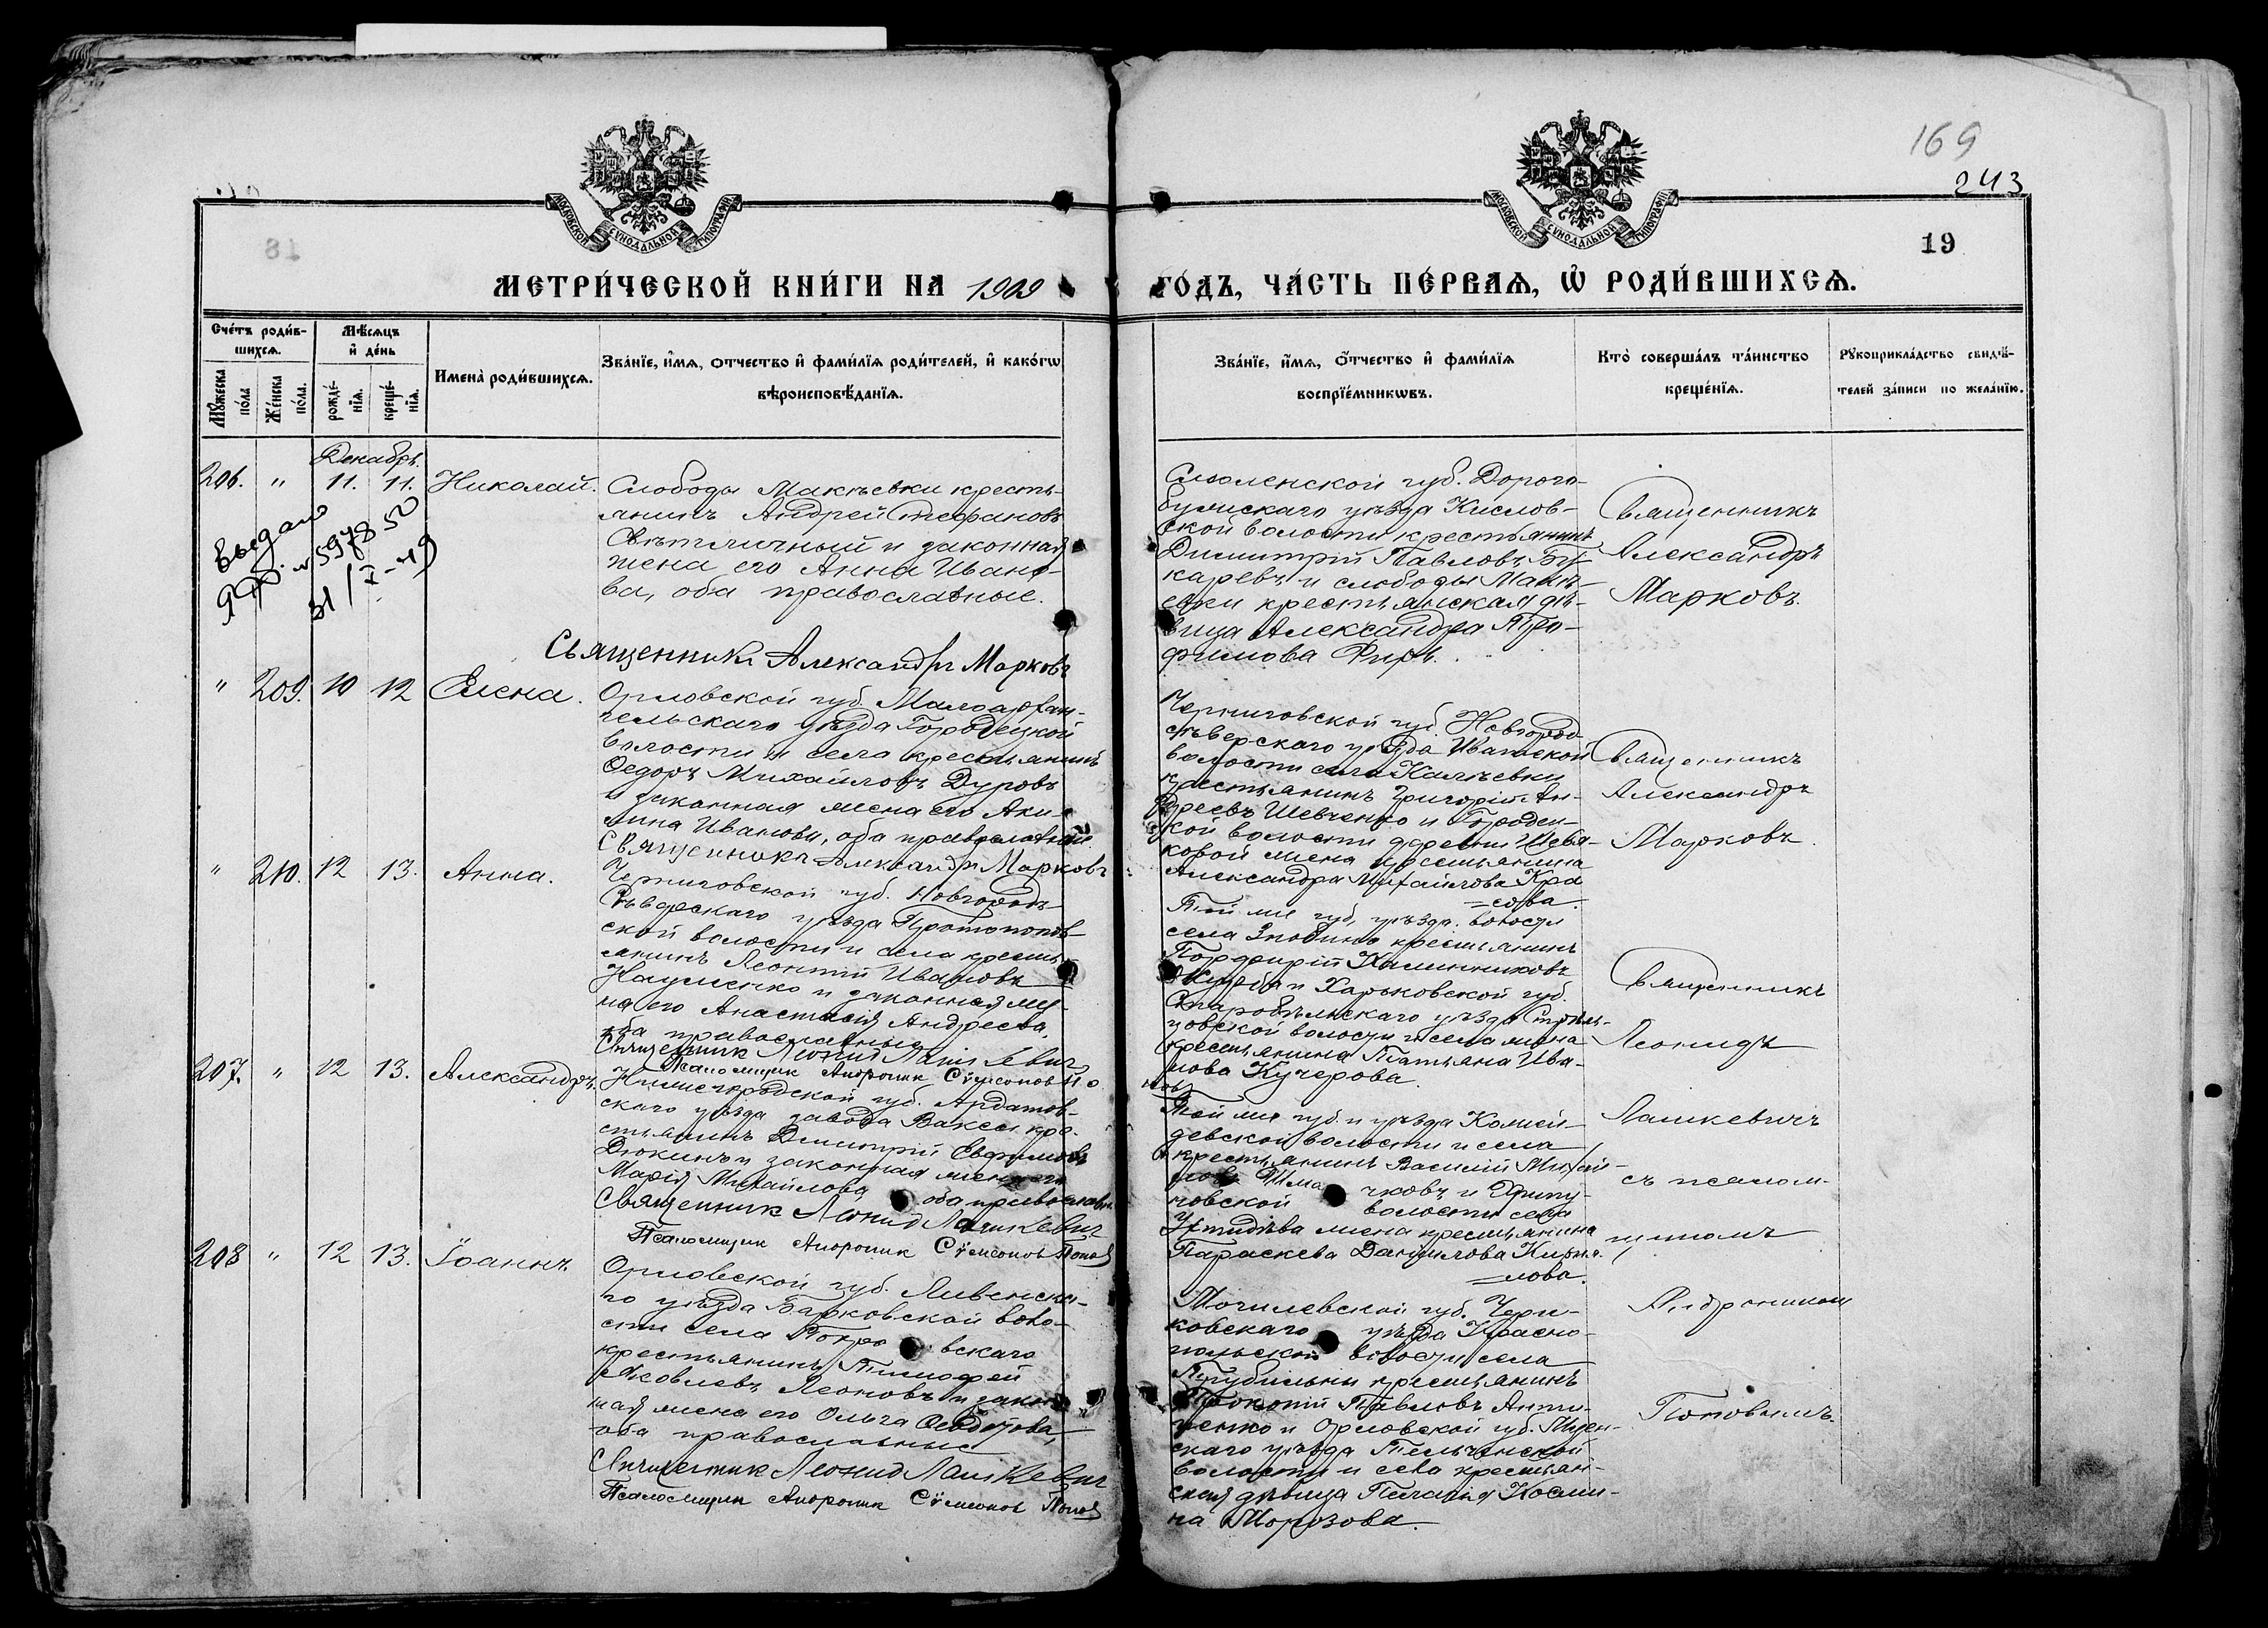 169
243
19
МОСКОВСКОЙ СѴНОДАЛЬНОЙ ТИПОГРАФІИ
МОСКОВСКОЙ СѴНОДАЛЬНОЙ ТИПОГРАФІИ
МЕТРИ́ЧЕСКОЙ КНИ́ГИ НА 1909 ГО́ДЪ, ЧА́СТЬ ПЕ́РВАѦ, Ѡ҆ РОДИ́ВШИХСѦ.
Сче́тъ роди́в-
шихсѧ.
Мꙋ́жеска по́ла
Же́нска по́ла.
Мѣ́сѧцъ
и҆ де́нь
рожде́-
нїѧ.
креще́-
нїѧ.
Имена̀ роди́вшихсѧ.
Зва́нїе, и҆́мѧ, о́тчество и҆ фами́лїѧ роди́телей, и҆ како́гѡ
вѣроисповѣ́данїѧ.
Зва́нїе, и҆́мѧ, о҆́тчество и҆ фами́лїѧ
воспрїе́мникѡвъ.
Кто̀ соверша́лъ та́инство
креще́нїѧ.
Рꙋкоприкла́дство свидѣ́-
телей за́писи по жела́нїю.
Декабрь.
206. " 11. 11. Николай.
Слободы Макѣевки кресть-
янинъ Андрей Стефановъ
Свѣтличный и законная
жена его Анна Ивано-
ва, оба православные.
Священникъ Александръ Марковъ
Смоленской губ. Дорого-
бужскаго уѣзда Кислов-
ской волости крестьянинъ
Димитрій Павловъ Бу-
каревъ и слободы Макѣ-
евки крестьянская дѣ-
вица Александра Тро-
фимова
Священникъ
Александръ
Марковъ.
выдано
31/X-49
" 209. 10 12 Елена.
Орловской губ. Малоархан-
гельскаго уѣзда Городецкой
волости и села крестьянинъ
Ѳедоръ Михайловъ Дуровъ
и законная жена его Аки-
лина Иванова, оба православные
Священникъ Александръ Марковъ
Черниговской губ. Новгород-
сѣверскаго уѣзда
волости села
крестьянинъ Григорій Ан-
дреевъ Шевченко и Городец-
кой волости деревни
жена крестьянина
Александра Михайлова Кра
=сова.
Священникъ
Александръ
Марковъ.
" 210. 12 13. Анна.
Черниговской губ. Новгородъ
Сѣверскаго уѣзда Протопопов-
ской волости и села кресть-
янинъ Леонтій Ивановъ
Науменко и законная же-
на его Анастасія Андреева,
оба православные
Священник Леонид Лашкевич
Псаломщик Андроник Сѵмеонов Попов
Той же губ, уѣзда, волости
села Знобино крестьянинъ
Порфирій Калинниковъ
и Харьковской губ.
Старобѣльскаго уѣзда Стрѣль-
цовской волости и села жена
крестьянина Татьяна Ива-
нова Кучерова.
Священникъ
Леонидъ
Лашкевичъ
съ псалом-
щикомъ
Андроникомъ
Поповымъ.
207. " 12 13. Александръ.
Нижегородской губ. Ардатов-
скаго уѣзда завода Выксы кре-
стьянинъ Димитрій Евфимовъ
Дюкинъ и законная жена его
Марія Михайлова оба православн.
Священник Леонид Лашкевич
Псаломщик Андроник Сѵмеонов Попов
Той же губ. и уѣзда
волости и села
крестьянинъ Василій Михай-
ловъ
волости села
жена крестьянина
Параскева Данилова Кирил-
=лова.
208 " 12 13. Іоаннъ.
Орловской губ. Ливенска-
го уѣзда Барковской воло-
сти села Покровскаго
крестьянинъ Тимофей
Яковлевъ Леоновъ и закон-
ная жена его Ольга Ѳедотова,
оба православные
Священник Леонид Лашкевич
Псаломщик Андроник Сѵмеонов Попов
Могилевской губ. Чери-
ковскаго уѣзда Красно-
польской волости села
крестьянинъ
Прокопій Павловъ Анти-
пенко и Орловской губ. Мцен-
скаго уѣзда Тельченской
волости и села крестьян-
ская дѣвица Пелагія Косми-
на Морозова.